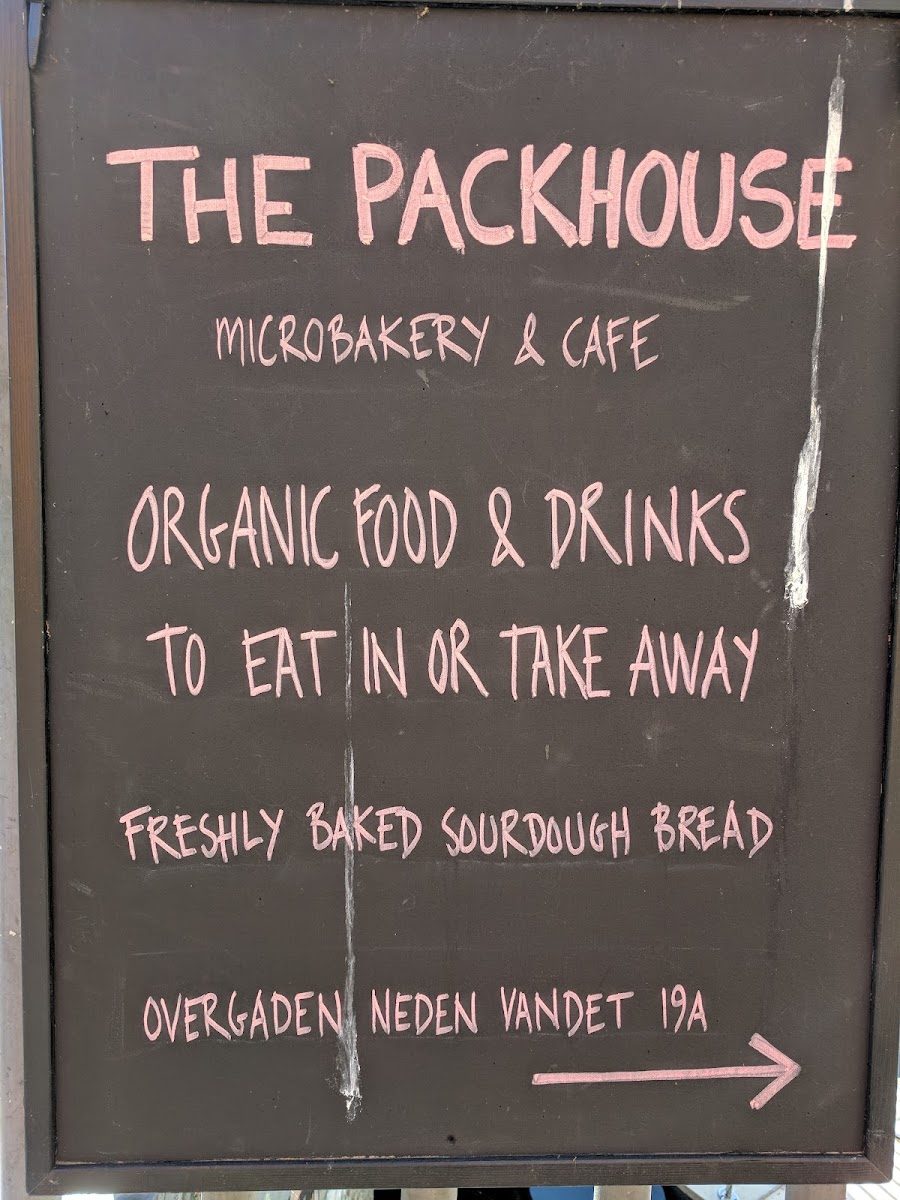 THE PACKHOUSE
MICROBAKERY & CAFE
ORGANIC FOOD & DRINKS
TO EAT IN OR TAKE AWAY
FRESHLY BAKED SOURDOUGH BREAD
OVERGADEN NEDEN VANDET 19A